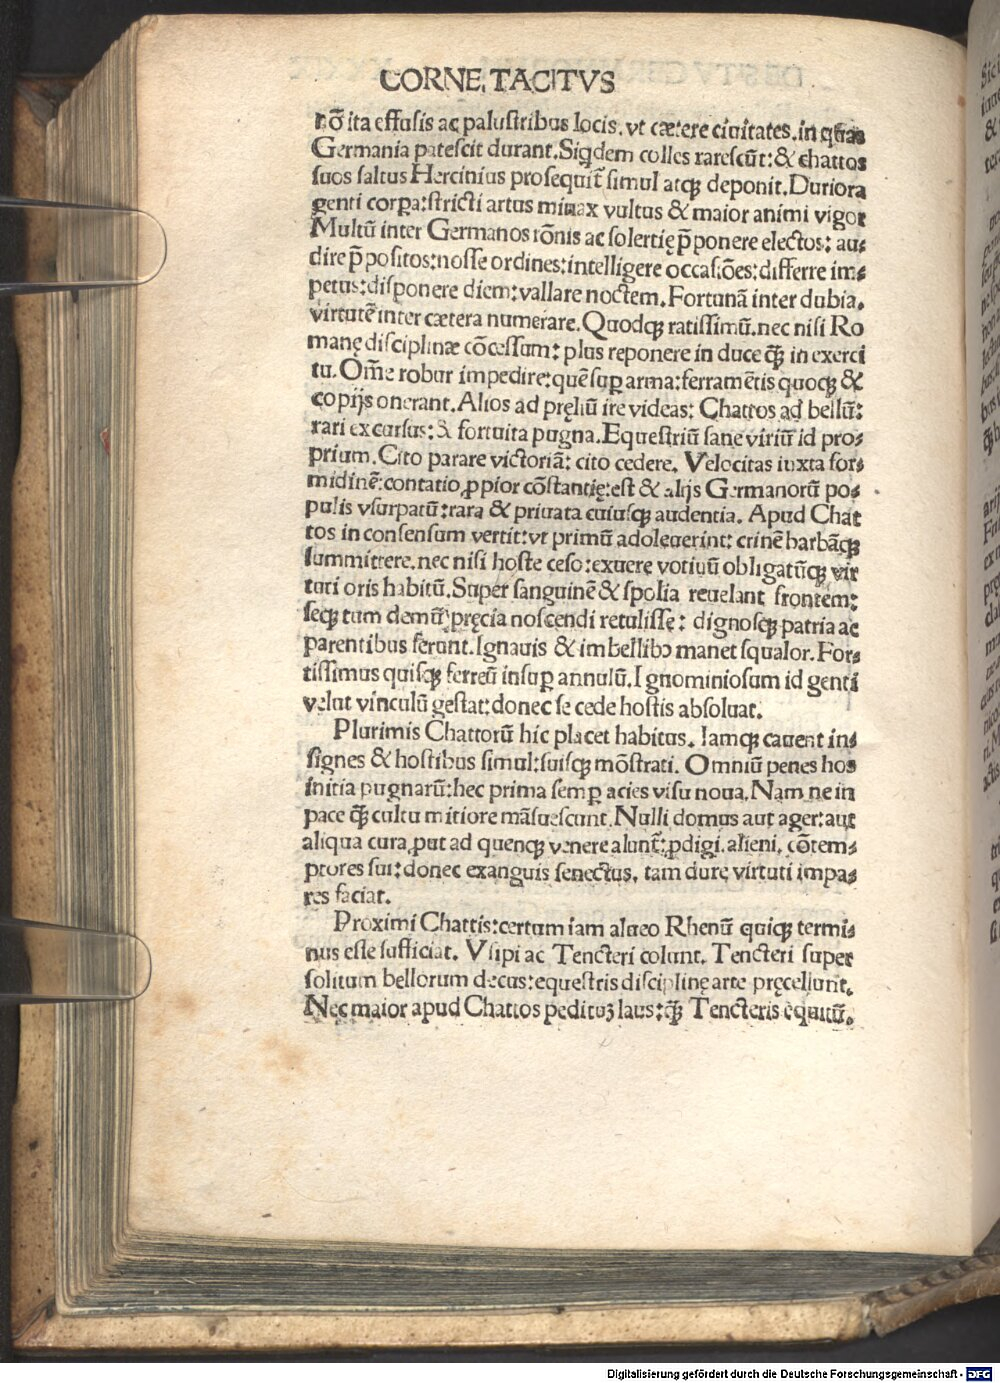 CORNE. TACITVS
nō ita effusis ac palustribus locis. vt cætere ciuitates. in quas
Germania patescit durant. Siqdem colles rarescūt: & chattos
suos saltus Hercinius prosequit̄ simul atqꝫ deponit. Duriora
genti corpa: stricti artus minax vultus & maior animi vigor
Multū inter Germanos rōnis ac solertię p̄ponere electos: au⸗
dire p̄positos: nosse ordines: intelligere occasiōes: differre im⸗
petus: disponere diem: vallare noctem. Fortunā inter dubia.
virtutē inter cætera numerare. Quodqꝫ ratissimū. nec nisi Ro
manę disciplinæ cōcessum: plus reponere in duce q̄ꝫ in exerci
tu. Om̄e robur impedire: quē suꝑ arma: ferramētis quoqꝫ &
copijs onerant. Alios ad pręliū ire videas: Chattos ad bellū:
rari excursus: & fortuita pugna. Equestriū sane viriū id pro⸗
prium. Cito parare victoriā: cito cedere. Velocitas iuxta for⸗
midinē: contatio ꝓpior cōstantię: est & alijs Germanorū po⸗
pulis vsurpatū: rara & priuata cuiusqꝫ audentia. Apud Chat
tos in consensum vertit: vt primū adoleuerint: crinē barbāqꝫ
summittere. nec nisi hoste ceso: exuere votiuū obligatūqꝫ vir
tuti oris habitū. Super sanguinē & spolia reuelant frontem:
seqꝫ tum demū pręcia noscendi retulisse: dignosqꝫ patria ac
parentibus ferunt. Ignauis & imbellibɔ manet squalor. For⸗
tissimus quisqꝫ ferreū insuꝑ annulū. Ignominiosum id genti
velut vinculū gestat: donec se cede hostis absoluat.
Plurimis Chattorū hic placet habitus. Iamqꝫ cauent in⸗
signes & hostibus simul: suisqꝫ mōstrati. Omniū penes hos
initia pugnarū: hec prima semꝑ acies visu noua. Nam ne in
pace q̄ꝫ cultu mitiore māsuescunt. Nulli domus aut ager: aut
aliqua cura. put ad quenqꝫ venere alunt̄: ꝓdigi. alieni. cōtem⸗
ptores sui: donec exanguis senectus. tam durę virtuti impa⸗
res faciat.
Proximi Chattis: certum iam alueo Rhenū quiqꝫ termi⸗
nus esse sufficiat. Vsipi ac Tencteri colunt. Tencteri super
solitum bellorum decus: equestris disciplinę arte pręcellunt.
Nec maior apud Chattos peditūꝫ laus: q̄ꝫ Tencteris equitū.
Digitalisierung gefördert durch die Deutsche Forschungsgemeinschaft - DFG